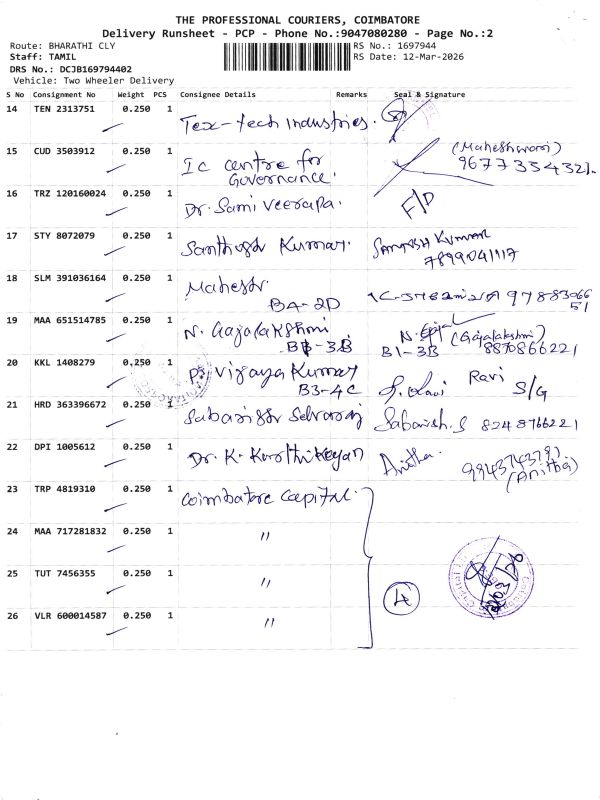 THE PROFESSIONAL COURIERS, COIMBATORE
Delivery Runsheet - PCP - Phone No.:9047080280 - Page No.:2
Route: BHARATHI CLY RS No.: 1697944
Staff: TAMIL RS Date: 12-Mar-2026
DRS No.: DCJB169794402
Vehicle: Two Wheeler Delivery
S No Consignment No Weight PCS Consignee Details Remarks Seal & Signature
14 TEN 2313751 0.250 1 Tex-tech Industries.
15 CUD 3503912 0.250 1 IC centre for Governance. (Maheshwari) 9677335432
16 TRZ 120160024 0.250 1 Dr. Sami Veerapa. F/D
17 STY 8072079 0.250 1 Santhosh Kumar. SANTHOSH KUMAR 7899041117
18 SLM 391036164 0.250 1 Mahesh. BA-2D 9788306651
19 MAA 651514785 0.250 1 N. Gajalakshmi B1-3B (Gajalakshmi) B1-3B 8870866221
20 KKL 1408279 0.250 1 Vijaya Kumar B3-4C Ravi S/G
21 HRD 363396672 0.250 1 Sabarish Selvaraj Sabarish.S 8248766221
22 DPI 1005612 0.250 1 Dr. K. Karthikeyan Anitha. (Anitha)
23 TRP 4819310 0.250 1 Coimbatore Capital.
24 MAA 717281832 0.250 1 "
25 TUT 7456355 0.250 1 " 4
26 VLR 600014587 0.250 1 "